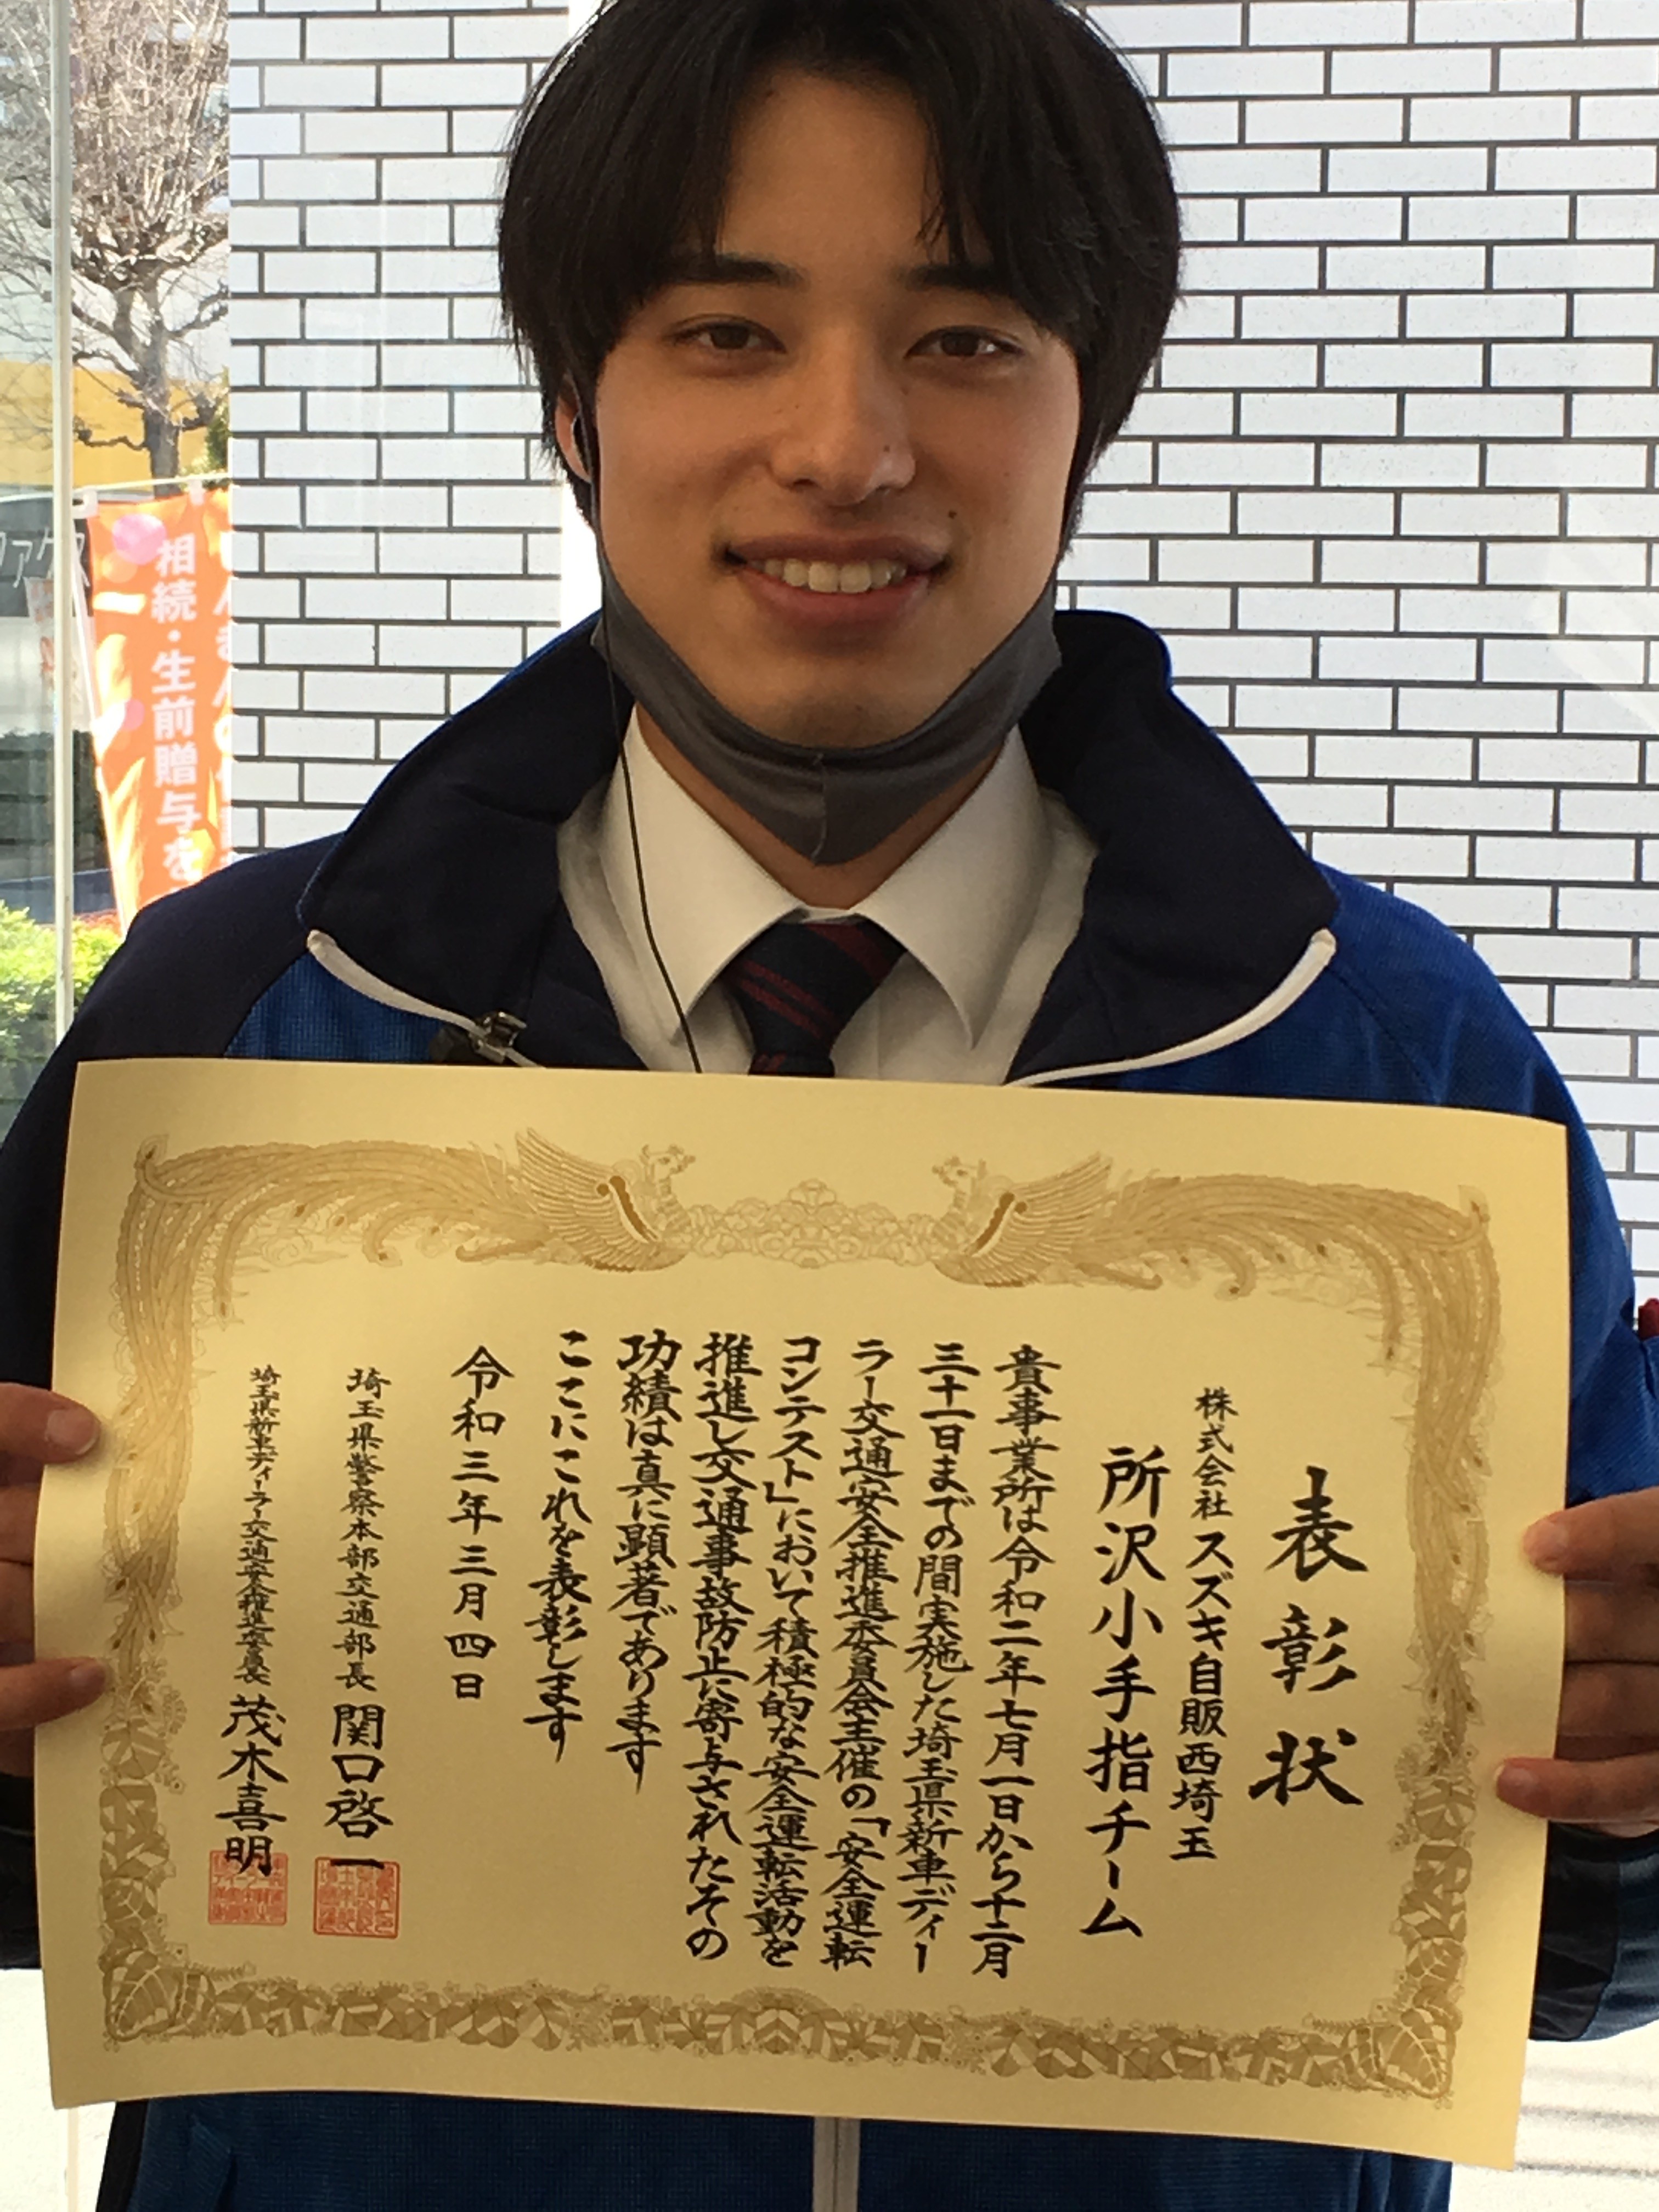 表彰状
株式会社 スズキ自販西埼玉
所沢小手指チーム
貴事業所は令和二年七月一日から十二月
三十一日までの間実施した埼玉県新車ディー
ラー交通安全推進委員会主催の「安全運転
コンテスト」において積極的な安全運転活動を
推進し交通事故防止に寄与されたその
功績は真に顕著であります
ここにこれを表彰します
令和三年三月四日
埼玉県警察本部交通部長 関口啓一
埼玉県新車ディーラー交通安全推進委員長 茂木喜明
相続・生前贈与を